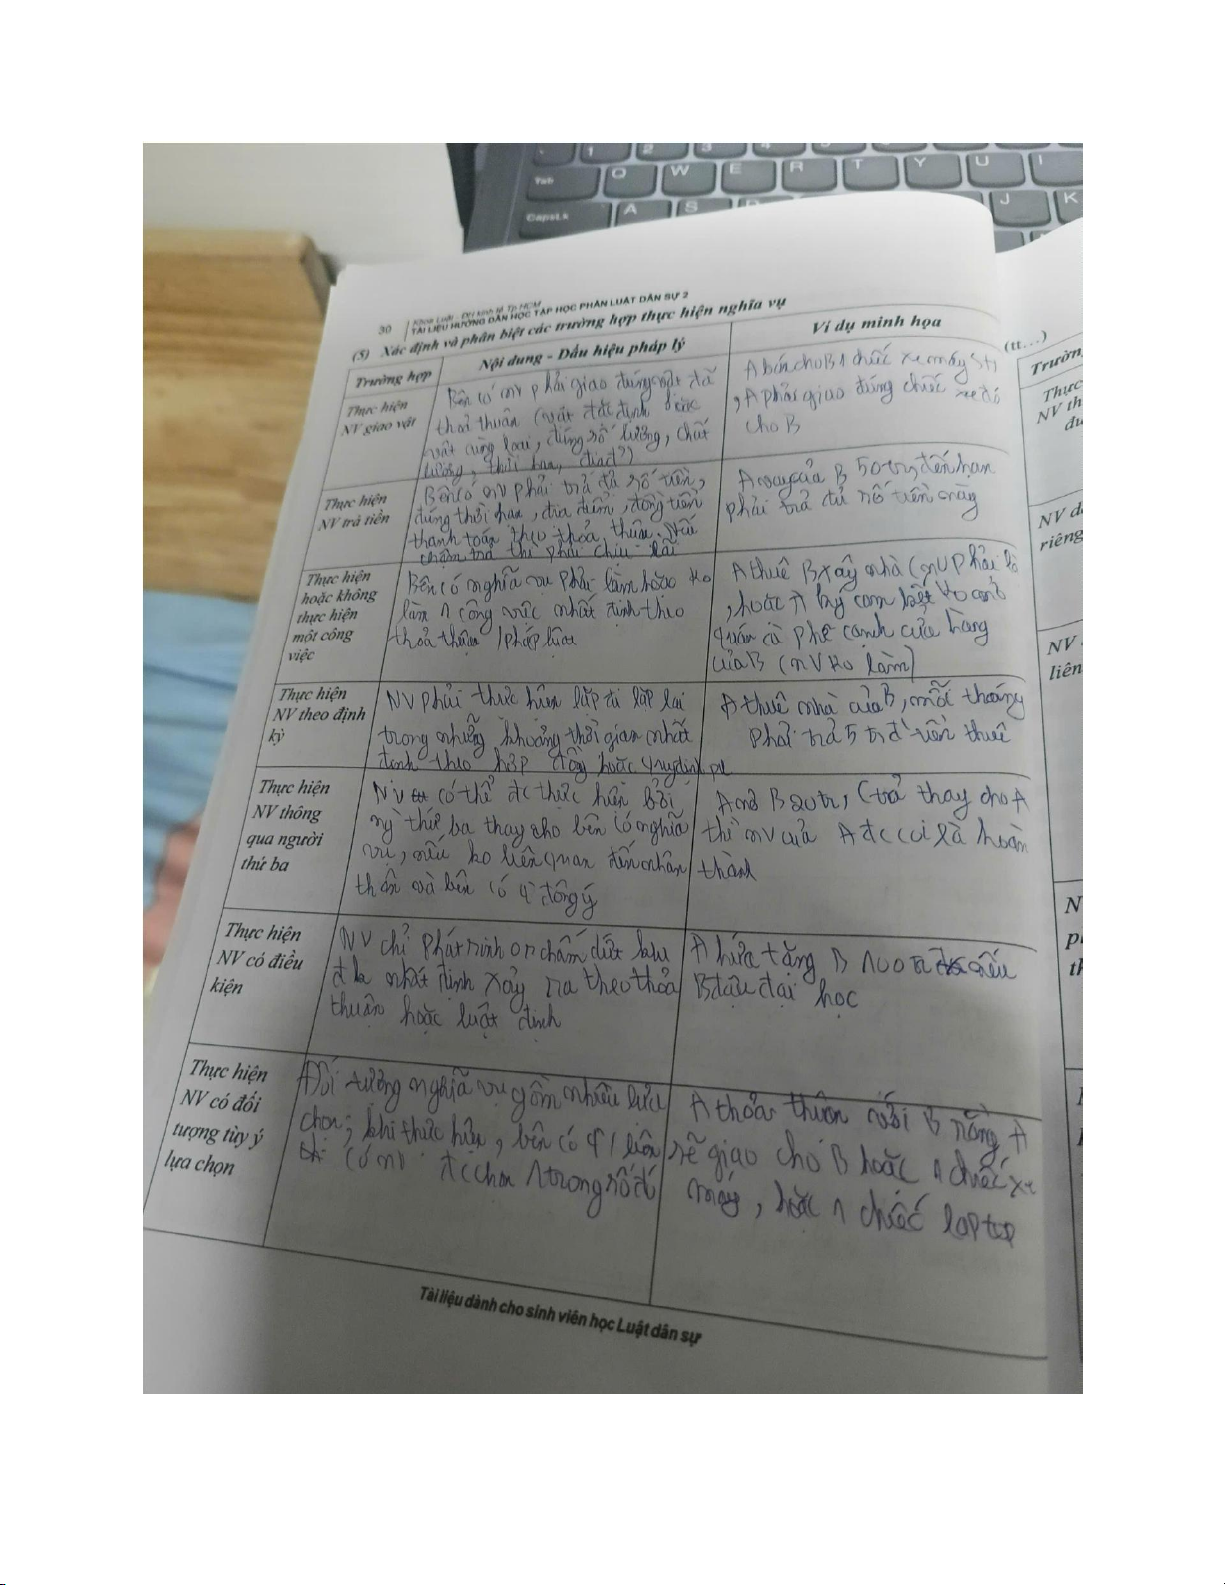 Tab Q W E R T Y U I
CapsLk A S J K
30 Khoa Luật - ĐH kinh tế Tp.HCM
TÀI LIỆU HƯỚNG DẪN HỌC TẬP HỌC PHẦN LUẬT DÂN SỰ 2
(5) Xác định và phân biệt các trường hợp thực hiện nghĩa vụ
Trường hợp
Nội dung - Dấu hiệu pháp lý
Ví dụ minh họa
Thực hiện
NV giao vật
Bên có nv phải giao đúng vật đã
thoả thuận (vật đặc định hoặc
vật cùng loại, đúng số lượng, chất
lượng, thời hạn,
A bán cho B 1 chiếc xe máy SH
, A phải giao đúng chiếc xe đó
cho B
Thực hiện
NV trả tiền
Bên có nv phải trả đủ số tiền,
đúng thời hạn, địa điểm, đồng tiền
thanh toán theo thỏa thuận. Nếu
chậm trả thì phải chịu lãi
A vay của B 50tr, đến hạn
phải trả đủ số tiền này
Thực hiện
hoặc không
thực hiện
một công
việc
Bên có nghĩa vụ phải làm hoặc ko
làm 1 công việc nhất định theo
thoả thuận / pháp luật
A thuê B xây nhà (nv phải là
, hoặc A ky cam kết ko mở
quán cà phê cạnh cửa hàng
của B (nv ko làm)
Thực hiện
NV theo định
kỳ
NV phải thực hiện lặp đi lặp lại
trong những khoảng thời gian nhất
định theo hợp đồng hoặc quy định pl
A thuê nhà của B, mỗi tháng
phải trả 5 trđ tiền thuê
Thực hiện
NV thông
qua người
thứ ba
NV có thể đc thực hiện bởi
ng thứ ba thay cho bên có nghĩa
vụ, nếu ko liên quan đến nhân
thân và bên có q đồng ý
A nợ B 20tr, C trả thay cho A
thì nv của A đc coi là hoàn
thành
Thực hiện
NV có điều
kiện
NV chỉ phát sinh or chấm dứt sau
đk nhất định xảy ra theo thỏa
thuận hoặc luật định
A hứa tặng B 100tr nếu
B đậu đại học
Thực hiện
NV có đối
tượng tùy ý
lựa chọn
Đối tượng nghĩa vụ gồm nhiều lựa
chọn; khi thực hiện, bên có q / bên
có nv đc chọn 1 trong số đó
A thỏa thuận với B rằng A
sẽ giao cho B hoặc 1 chiếc xe
máy, hoặc 1 chiếc laptop
Tài liệu dành cho sinh viên học Luật dân sự
(tt...)
Trườn
Thực
NV th
NV d
riêng
NV
liên